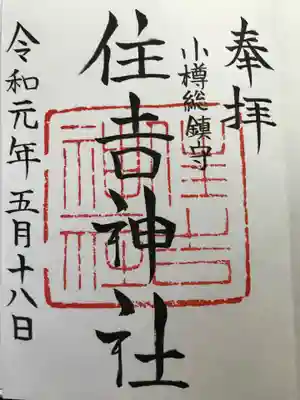 奉拝
小樽総鎮守
住吉神社
令和元年五月十八日
住吉神社